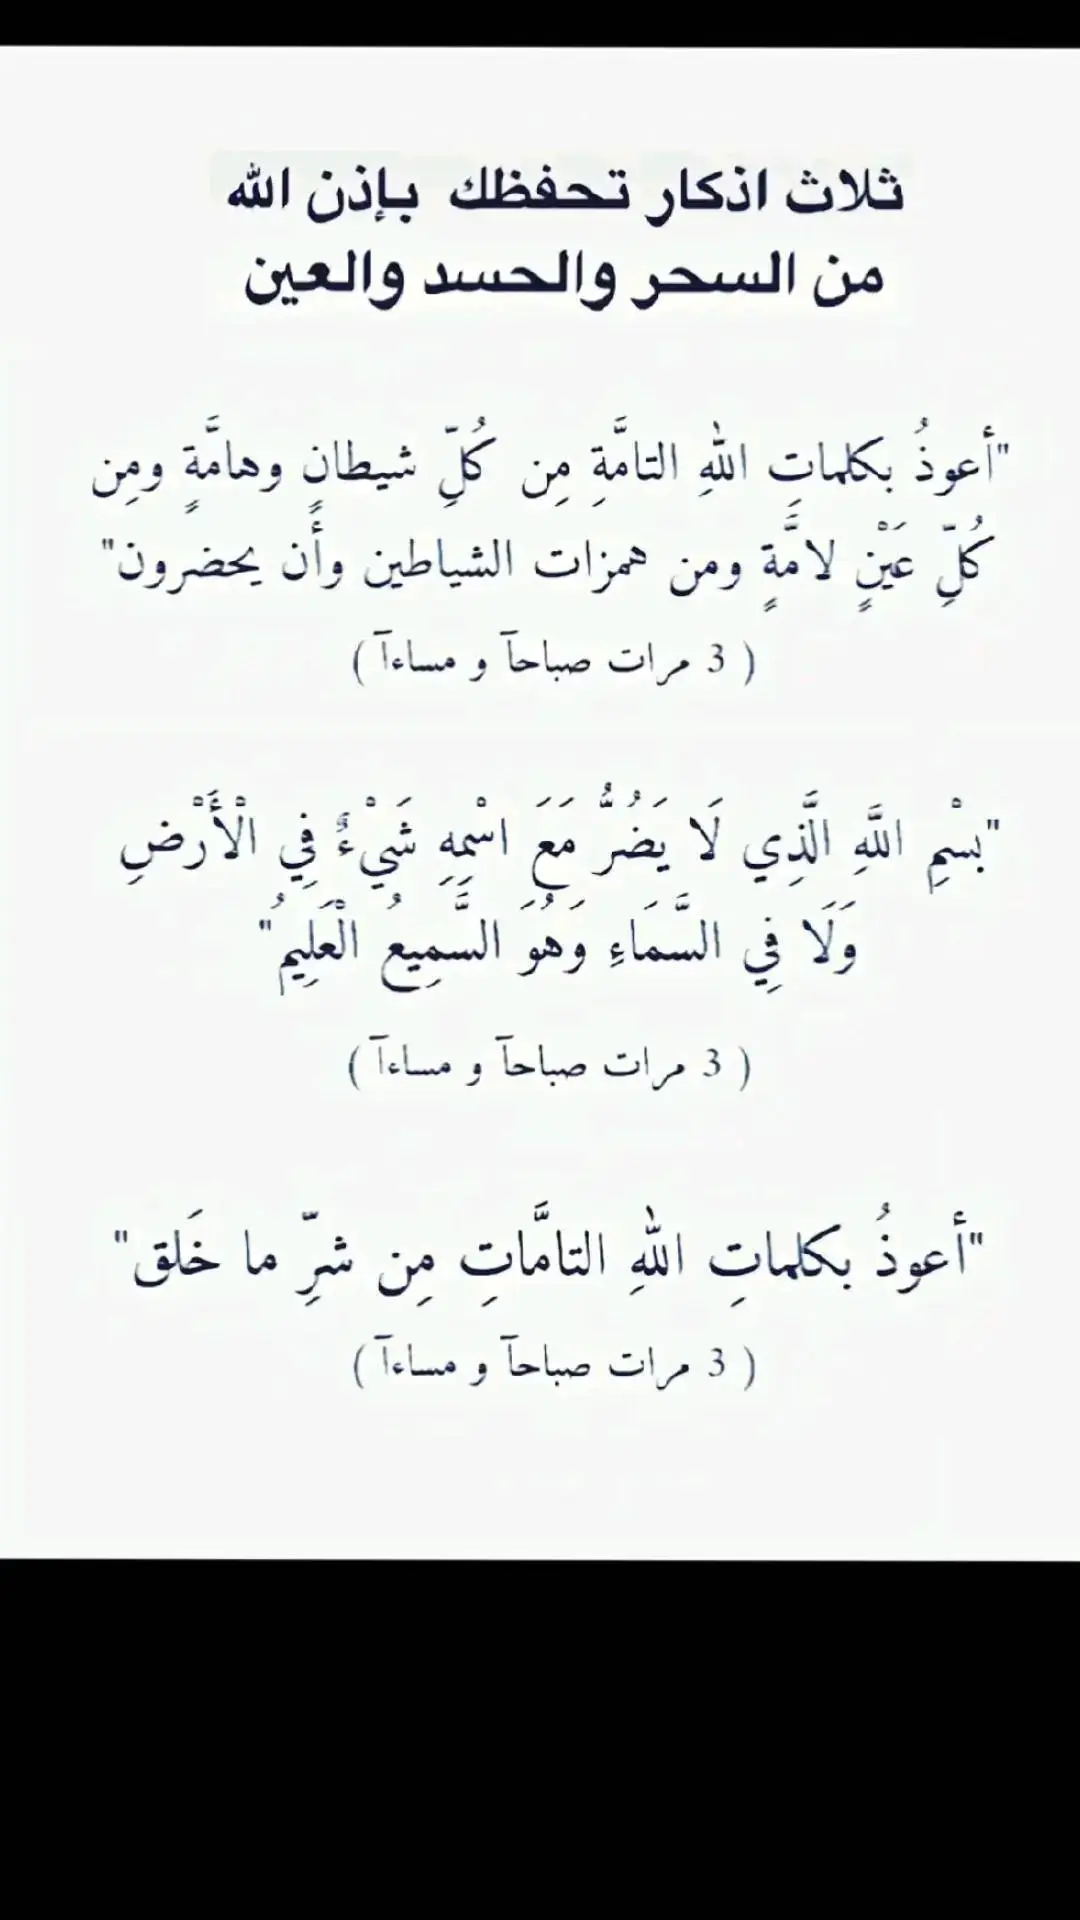 ثلاث اذكار تحفظك بإذن الله
من السحر والحسد والعين
"أعوذُ بكلماتِ اللهِ التامَّةِ مِن كُلِّ شيطانٍ وهامَّةٍ ومِن
كُلِّ عَيْنٍ لامَّةٍ ومن همزات الشياطين وأن يحضرون"
( 3 مرات صباحآ و مساءآ )
"بِسْمِ اللَّهِ الَّذِي لَا يَضُرُّ مَعَ اسْمِهِ شَيْءٌ فِي الْأَرْضِ
وَلَا فِي السَّمَاءِ وَهُوَ السَّمِيعُ الْعَلِيمُ"
( 3 مرات صباحآ و مساءآ )
"أعوذُ بكلماتِ اللهِ التامَّاتِ مِن شرِّ ما خَلق"
( 3 مرات صباحآ و مساءآ )